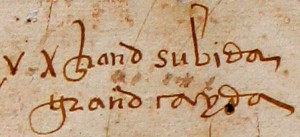 v x grand subida
grand cayda